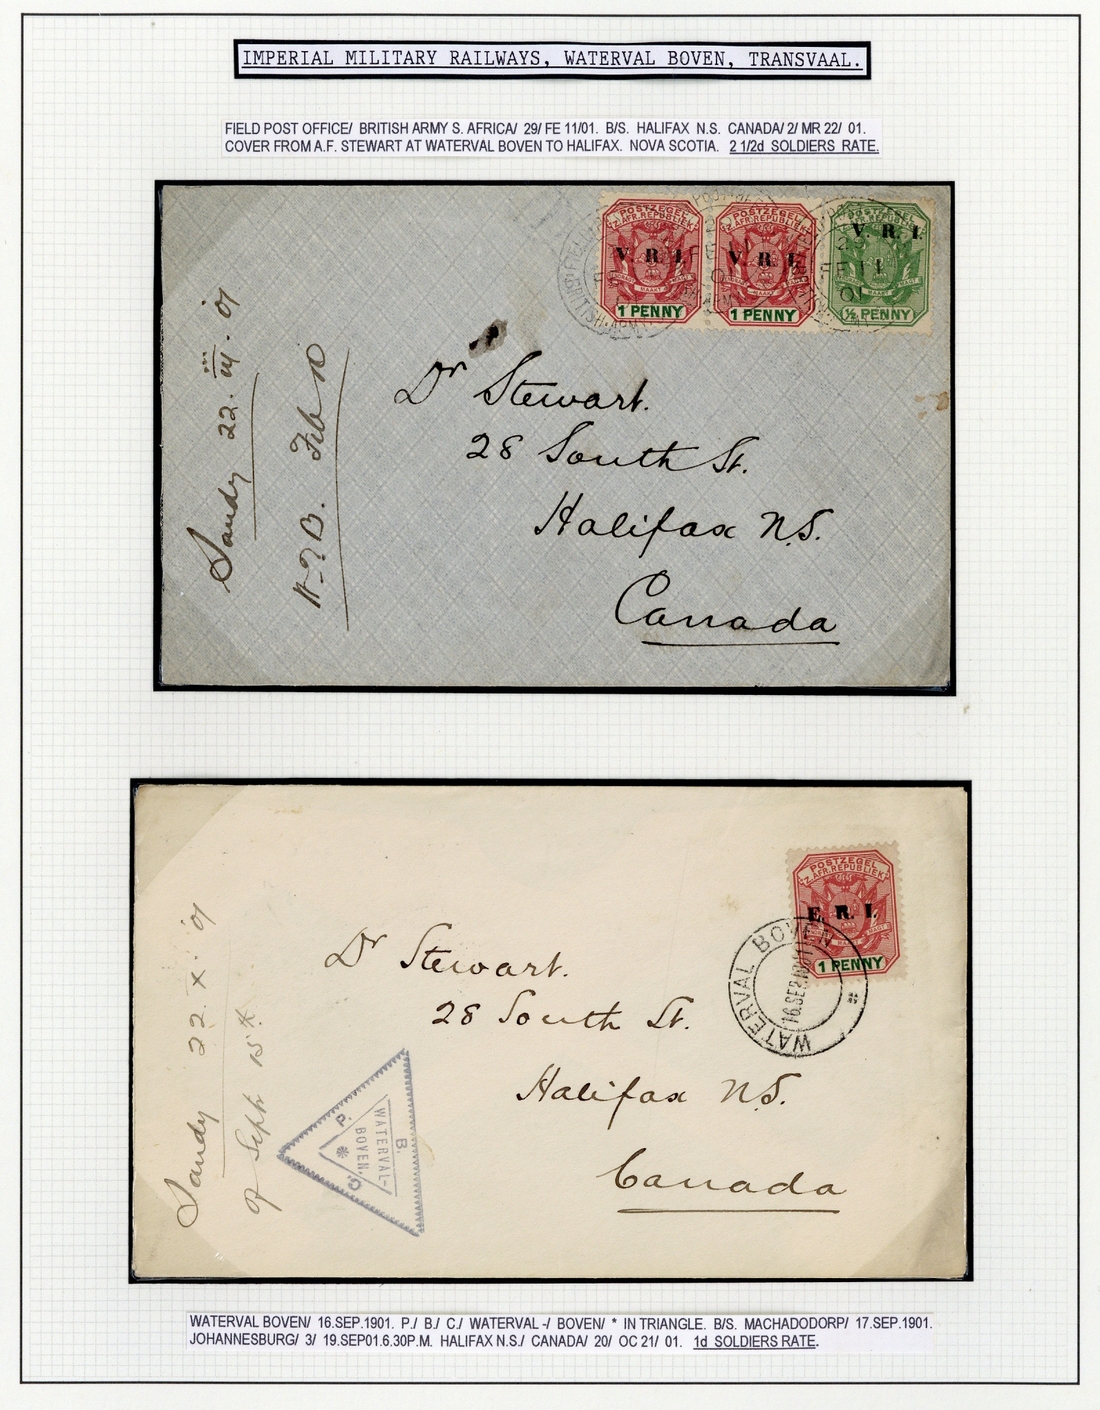 IMPERIAL MILITARY RAILWAYS, WATERVAL BOVEN, TRANSVAAL.
FIELD POST OFFICE/ BRITISH ARMY S. AFRICA/ 29/ FE 11/01. B/S. HALIFAX N.S. CANADA/ 2/ MR 22/ 01.
COVER FROM A.F. STEWART AT WATERVAL BOVEN TO HALIFAX. NOVA SCOTIA. 2 1/2d SOLDIERS RATE.
POSTZEGEL
Z. AFR. REPUBLIEK
V. R. I.
1 PENNY
POSTZEGEL
Z. AFR. REPUBLIEK
V. R. I.
1 PENNY
POSTZEGEL
Z. AFR. REPUBLIEK
V. R. I.
½ PENNY
BRITISH ARMY
FE 11
01
Dr Stewart.
28 South St.
Halifax N.S.
Canada
Sandy 22. iii. '01
Feb 10
POSTZEGEL
Z. AFR. REPUBLIEK
E. R. I.
1 PENNY
WATERVAL BOVEN
16.SEP.1901
Dr Stewart.
28 South St.
Halifax N.S.
Canada
Sandy 22. x. '01
Sept 15th
P. B. C.
WATERVAL-
BOVEN.
*
WATERVAL BOVEN/ 16.SEP.1901. P./ B./ C./ WATERVAL -/ BOVEN/ * IN TRIANGLE. B/S. MACHADODORP/ 17.SEP.1901.
JOHANNESBURG/ 3/ 19.SEP01.6.30P.M. HALIFAX N.S./ CANADA/ 20/ OC 21/ 01. 1d SOLDIERS RATE.